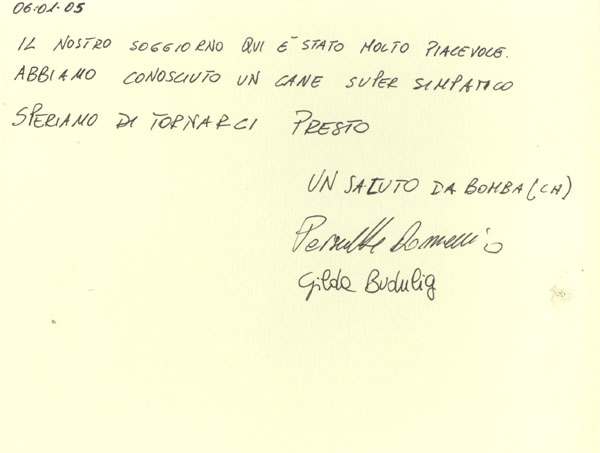 06.01.05
IL NOSTRO SOGGIORNO QUI È STATO MOLTO PIACEVOLE.
ABBIAMO CONOSCIUTO UN CANE SUPER SIMPATICO
SPERIAMO DI TORNARCI PRESTO
UN SALUTO DA BOMBA (CH)
Domenico
Gilda Budulig